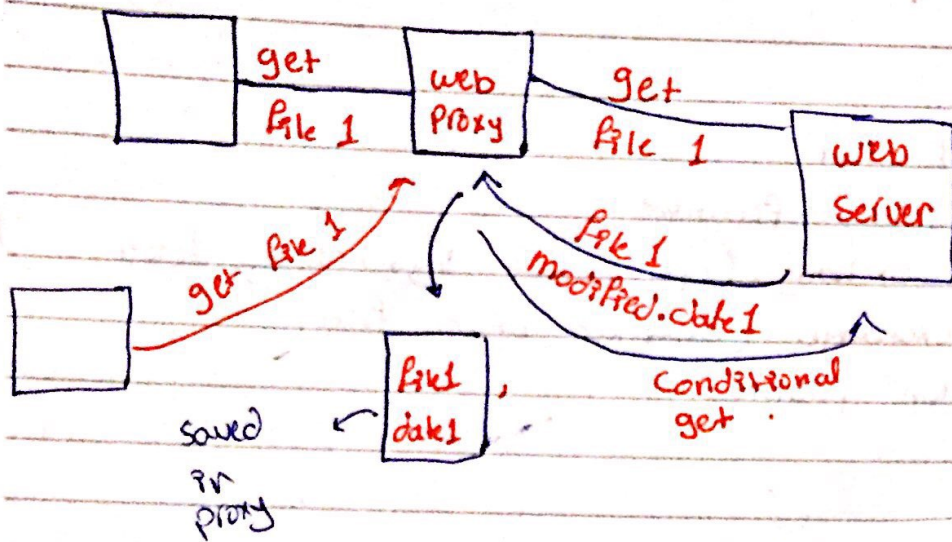 get
file 1
web
proxy
get
file 1
web
server
get file 1
file 1
modified.date1
conditional
get .
file1
date1
,
saved
in
proxy